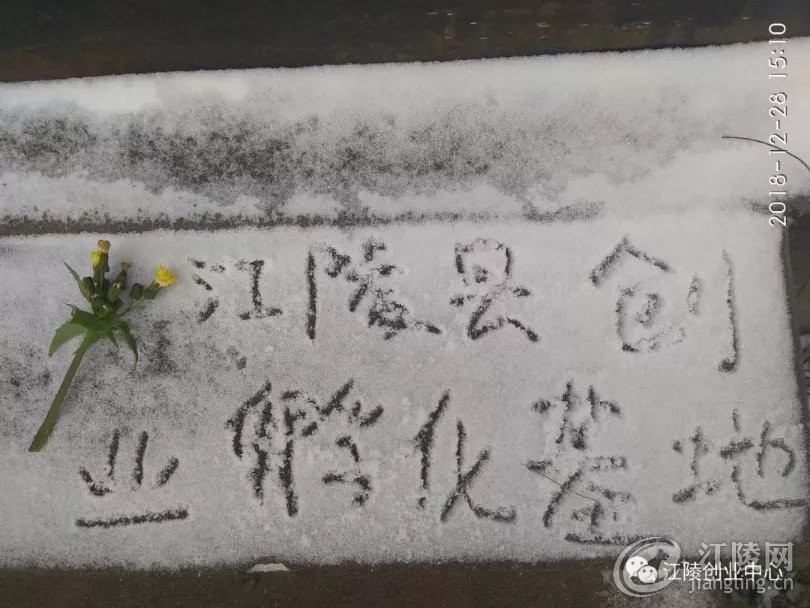 2018-12-28 15:10
江陵县创
业孵化基地
江陵网
江陵创业中心
jiangling.cn